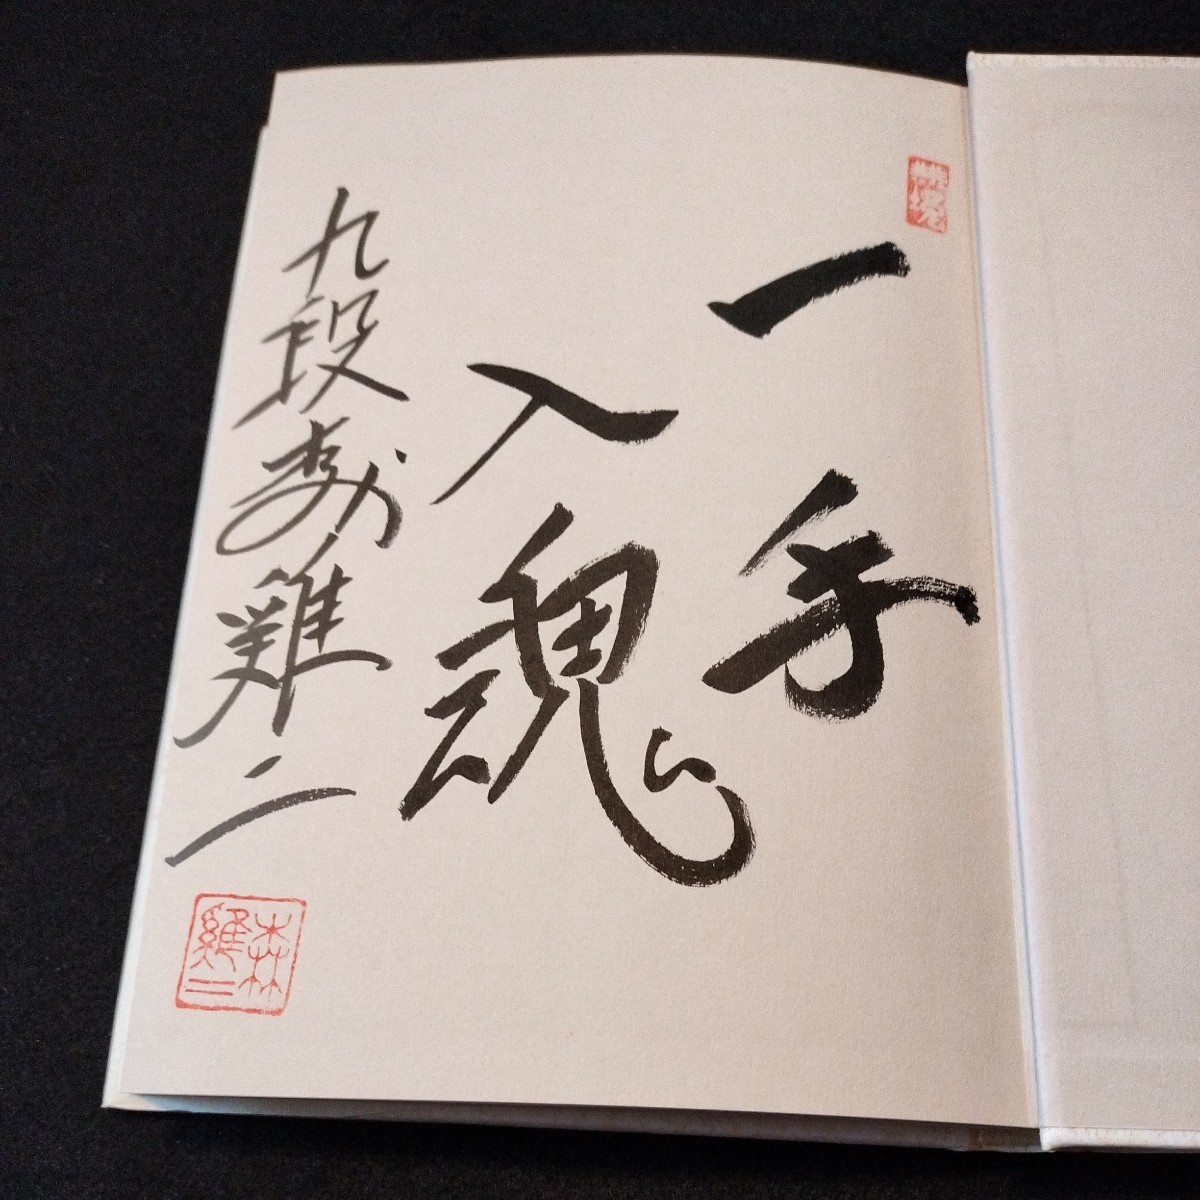 一手
入魂
九段 森 雞二
森
雞二